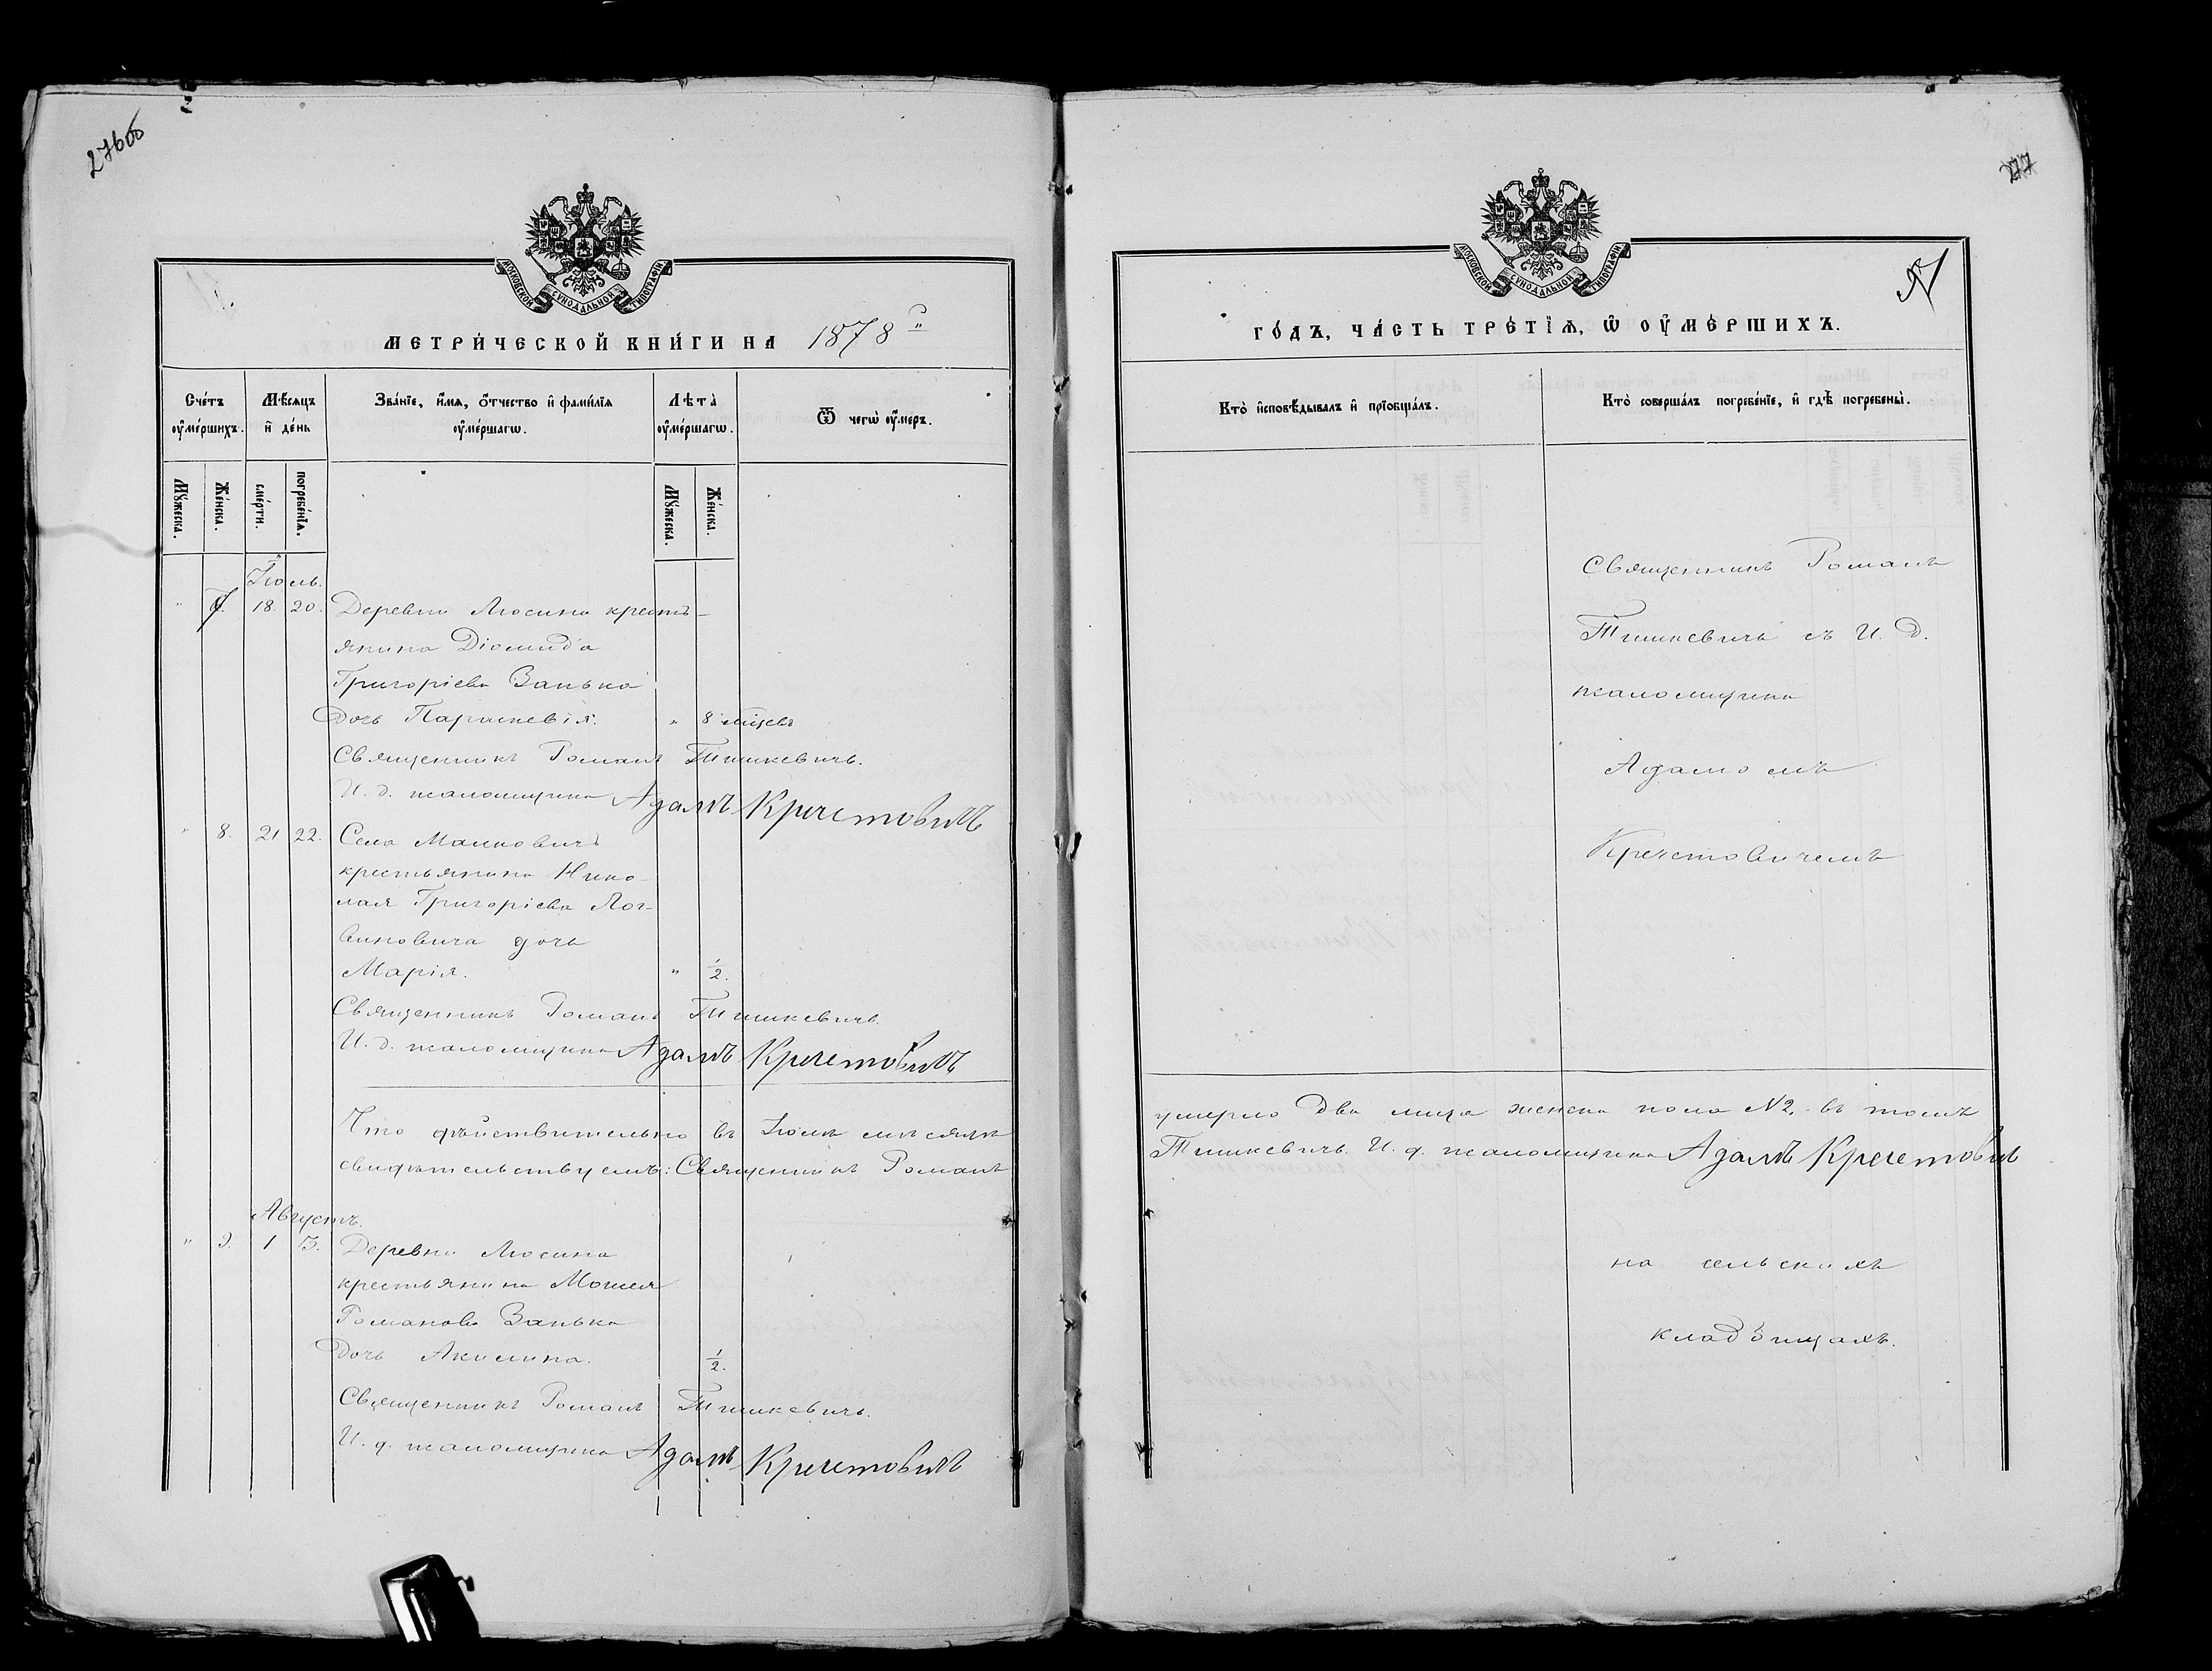 276об
277
МОСКОВСКОЙ СѴНОДАЛЬНОЙ ТИПОГРАФІИ
МЕТРИ́ЧЕСКОЙ КНИ́ГИ НА 1878
Сче́тъ оу҆ме́ршихъ.
Мѣ́сяцъ и҆ де́нь
Зва́нїе, и҆́мѧ, ѻ҆́тчество и҆ фами́лїѧ оу҆ме́ршагѡ.
Лѣ́та оу҆ме́ршагѡ.
Ѿ чегѡ̀ оу҆́меръ.
Мꙋ́жеска.
Же́нска.
сме́рти.
погребе́нїѧ.
Мꙋ́жеска.
Же́нска.
Іюль.
" 7. 18. 20. Деревни Люсина кресть-
янина Діомида
Григоріева Занька
дочь Параскевія. " 8 мѣсяцевъ
Священникъ Романъ Тишкевичъ.
И. д. псаломщика Адамъ Кречетовичъ
" 8. 21 22. Села Малковичъ
крестьянина Нико-
лая Григоріева Лог-
виновича дочь
Марія. " 1/2.
Священникъ Романъ Тишкевичъ.
И. д. псаломщика Адамъ Кречетовичъ
Что дѣйствительно въ Іюлѣ мѣсяцѣ
свидѣтельствуемъ: Священникъ Романъ
Августъ.
" 9. 1 3. Деревни Люсина
крестьянина Моисея
Романова Занька
дочь Акилина. 1/2.
Священникъ Романъ Тишкевичъ.
И. д. псаломщика Адамъ Кречетовичъ
МОСКОВСКОЙ СѴНОДАЛЬНОЙ ТИПОГРАФІИ
ГО́ДЪ, ЧА́СТЬ ТРЕ́ТЇѦ, Ѡ҆ ОУ҆МЕ́РШИХЪ.
Кто̀ и҆сповѣ́дывалъ и҆ прїѡбща́лъ.
Кто̀ соверша́лъ погребе́нїе, и҆ гдѣ̀ погребены̀.
Священникъ Романъ
Тишкевичъ съ И. Д.
псаломщика
Адамомъ
Кречетовичемъ
умерло два лица женска пола №2, въ томъ
Тишкевичъ. И. д. псаломщика Адамъ Кречетовичъ
на сельскихъ
кладбищахъ.